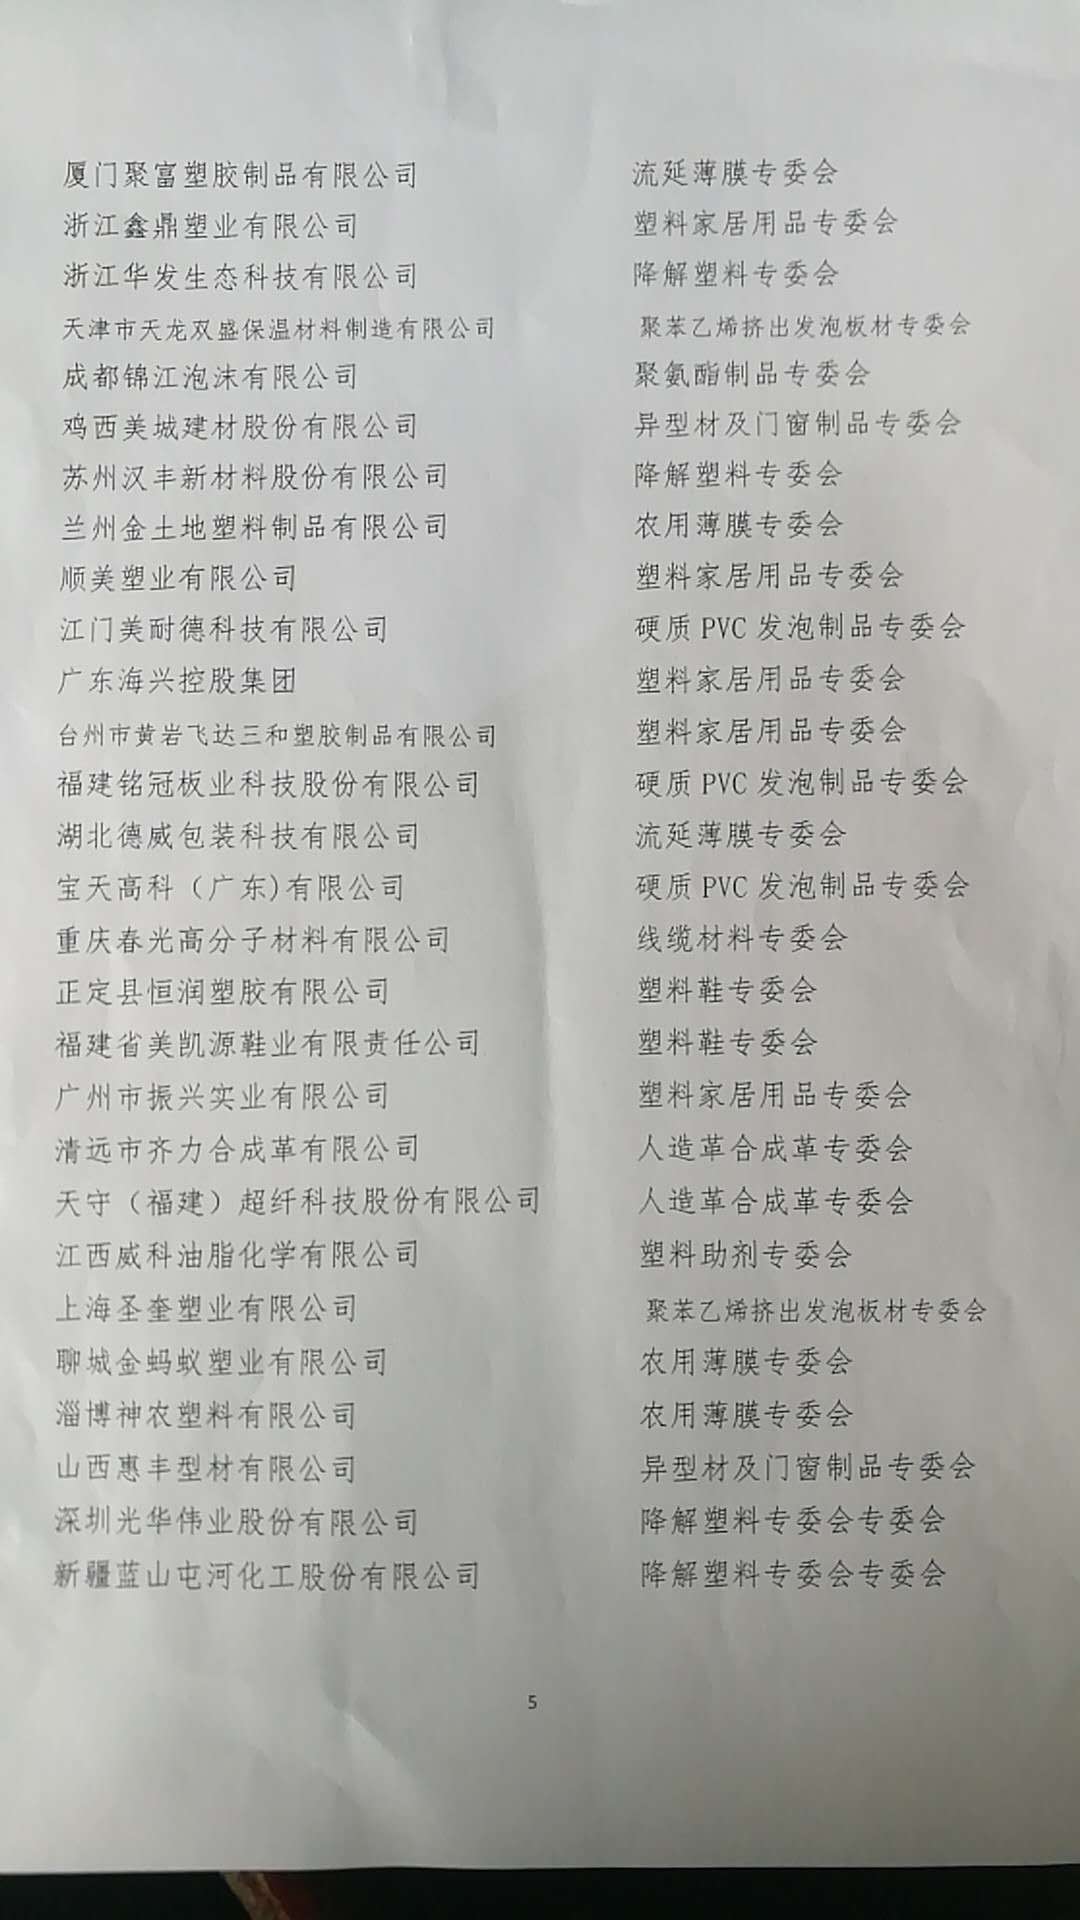 厦门聚富塑胶制品有限公司 流延薄膜专委会
浙江鑫鼎塑业有限公司 塑料家居用品专委会
浙江华发生态科技有限公司 降解塑料专委会
天津市天龙双盛保温材料制造有限公司 聚苯乙烯挤出发泡板材专委会
成都锦江泡沫有限公司 聚氨酯制品专委会
鸡西美城建材股份有限公司 异型材及门窗制品专委会
苏州汉丰新材料股份有限公司 降解塑料专委会
兰州金土地塑料制品有限公司 农用薄膜专委会
顺美塑业有限公司 塑料家居用品专委会
江门美耐德科技有限公司 硬质 PVC 发泡制品专委会
广东海兴控股集团 塑料家居用品专委会
台州市黄岩飞达三和塑胶制品有限公司 塑料家居用品专委会
福建铭冠板业科技股份有限公司 硬质 PVC 发泡制品专委会
湖北德威包装科技有限公司 流延薄膜专委会
宝天高科（广东)有限公司 硬质 PVC 发泡制品专委会
重庆春光高分子材料有限公司 线缆材料专委会
正定县恒润塑胶有限公司 塑料鞋专委会
福建省美凯源鞋业有限责任公司 塑料鞋专委会
广州市振兴实业有限公司 塑料家居用品专委会
清远市齐力合成革有限公司 人造革合成革专委会
天守（福建）超纤科技股份有限公司 人造革合成革专委会
江西威科油脂化学有限公司 塑料助剂专委会
上海圣奎塑业有限公司 聚苯乙烯挤出发泡板材专委会
聊城金蚂蚁塑业有限公司 农用薄膜专委会
淄博神农塑料有限公司 农用薄膜专委会
山西惠丰型材有限公司 异型材及门窗制品专委会
深圳光华伟业股份有限公司 降解塑料专委会专委会
新疆蓝山屯河化工股份有限公司 降解塑料专委会专委会
5